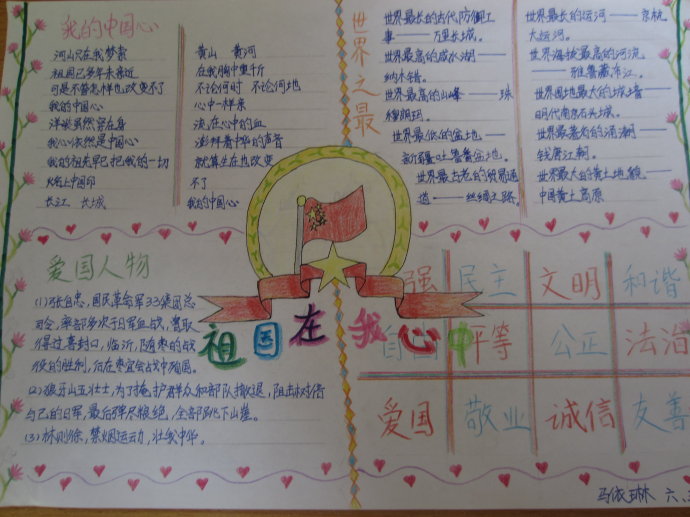 我的中国心
河山只在我梦萦
祖国已多年未亲近
可是不管怎样也改变不了
我的中国心
洋装虽然穿在身
我心依然是中国心
我的祖先早已把我的一切
烙上中国印
长江 长城
黄山 黄河
在我胸中重千斤
不论何时 不论何地
心中一样亲
流在心中的血
澎拜着中华的声音
就算生在他乡也改变
不了
我的中国心
世界之最
世界最长的古代防御工
事——万里长城。
世界最高的咸水湖——
纳木错。
世界最高的山峰——珠
穆朗玛。
世界最低的盆地——
新疆吐鲁番盆地。
世界最古老的贸易通
道——丝绸之路。
世界最长的运河——京杭
大运河。
世界海拔最高的河流
——雅鲁藏布江。
世界围地最大的城墙——
明代南京石头城。
世界最著名的涌潮——
钱唐江潮。
世界最大的黄土地貌——
中国黄土高原
爱国人物
(1)张自忠,国民革命军33集团总
司令,率部多次于日军血战,曾取
得过喜封口,临沂,随枣的战
役的胜利,后在枣宜会战中殉国。
(2)狼牙山五壮士,为了掩护群众和部队撤退,阻击
与己的日军,最后弹尽粮绝,全部跳下山崖。
(3)林则徐,禁烟运动,壮我中华。
祖国在我心中
强 民主 文明 和谐
自 平等 公正 法治
爱国 敬业 诚信 友善
马依琳 六.